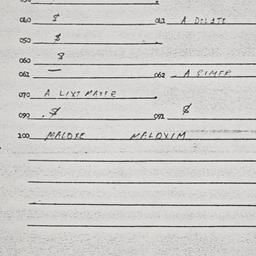 040 $ 041 A DELATE
050 $
060 $
061 — 062 A SIMER
070 A LIXT MAYSE
090 . $ 091 $
100 MALOXE MALOXIM